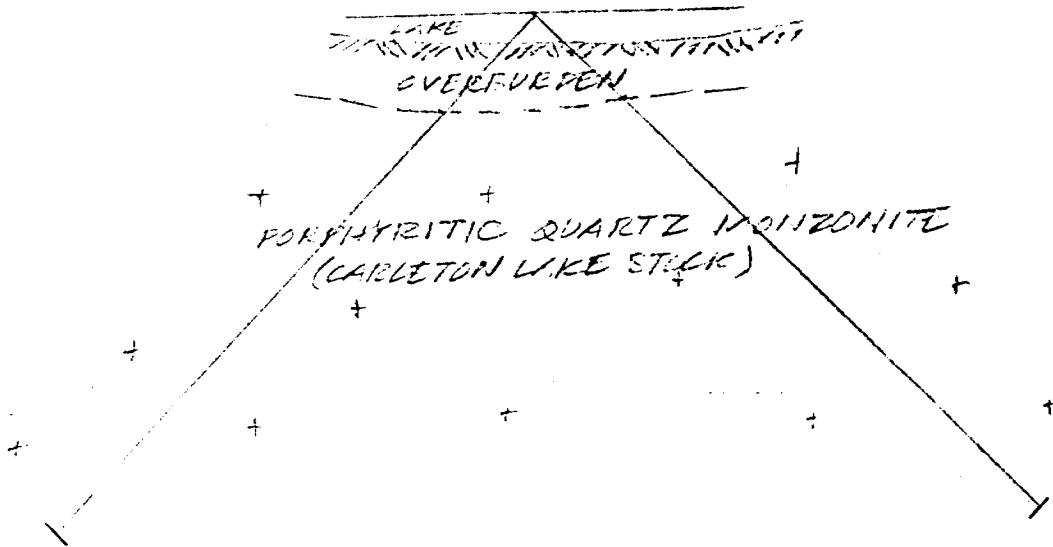 LAKE
OVERBURDEN
PORPHYRITIC QUARTZ MONZONITE
(CARLETON LAKE STOCK)